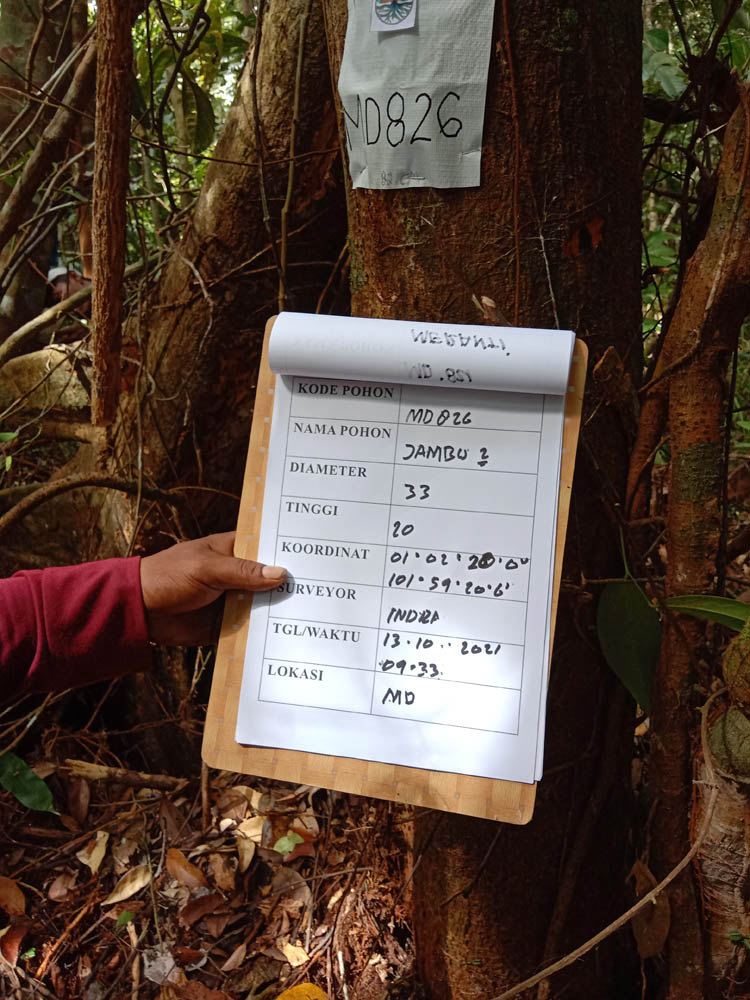 MD826
KODE POHON
MD826
NAMA POHON
JAMBU 2
DIAMETER
33
TINGGI
20
KOORDINAT
01° 02' 20.0"
101° 59' 20.6"
SURVEYOR
INDRA
TGL/WAKTU
13.10..2021
09.33.
LOKASI
MD